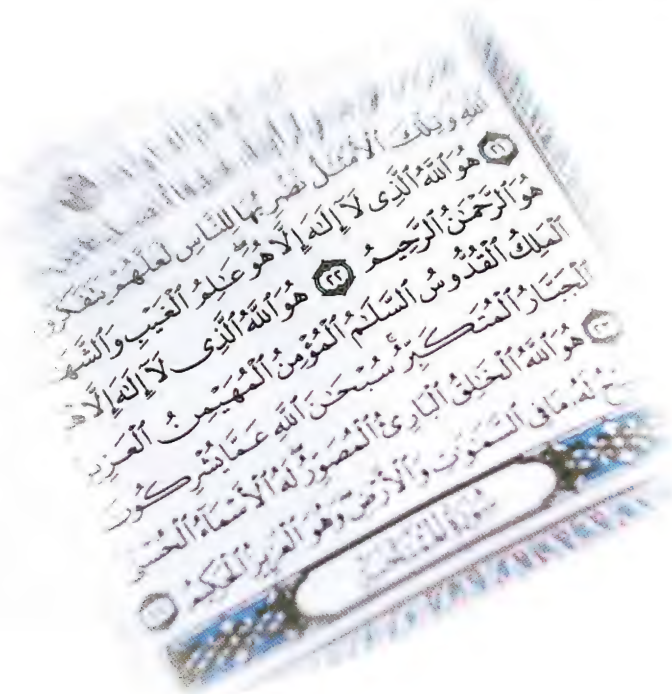 ٱللَّهِ وَتِلْكَ ٱلْأَمْثَٰلُ نَضْرِبُهَا لِلنَّاسِ لَعَلَّهُمْ يَتَفَكَّرُو
٢١ هُوَ ٱللَّهُ ٱلَّذِى لَآ إِلَٰهَ إِلَّا هُوَ عَٰلِمُ ٱلْغَيْبِ وَٱلشَّهَٰ
هُوَ ٱلرَّحْمَٰنُ ٱلرَّحِيمُ ٢٢ هُوَ ٱللَّهُ ٱلَّذِى لَآ إِلَٰهَ إِلَّا هُ
ٱلْمَلِكُ ٱلْقُدُّوسُ ٱلسَّلَٰمُ ٱلْمُؤْمِنُ ٱلْمُهَيْمِنُ ٱلْعَزِيزُ
ٱلْجَبَّارُ ٱلْمُتَكَبِّرُ سُبْحَٰنَ ٱللَّهِ عَمَّا يُشْرِكُونَ
٢٣ هُوَ ٱللَّهُ ٱلْخَٰلِقُ ٱلْبَارِئُ ٱلْمُصَوِّرُ لَهُ ٱلْأَسْمَآءُ ٱلْحُسْنَ
حُ لَهُۥ مَا فِى ٱلسَّمَٰوَٰتِ وَٱلْأَرْضِ وَهُوَ ٱلْعَزِيزُ ٱلْحَكِيمُ ٢٤
سُورَةُ ٱلْمُمْتَحَنَةِ